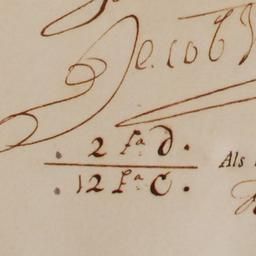 Jecob
. 2 fª D.
Als
. 12 fª C.